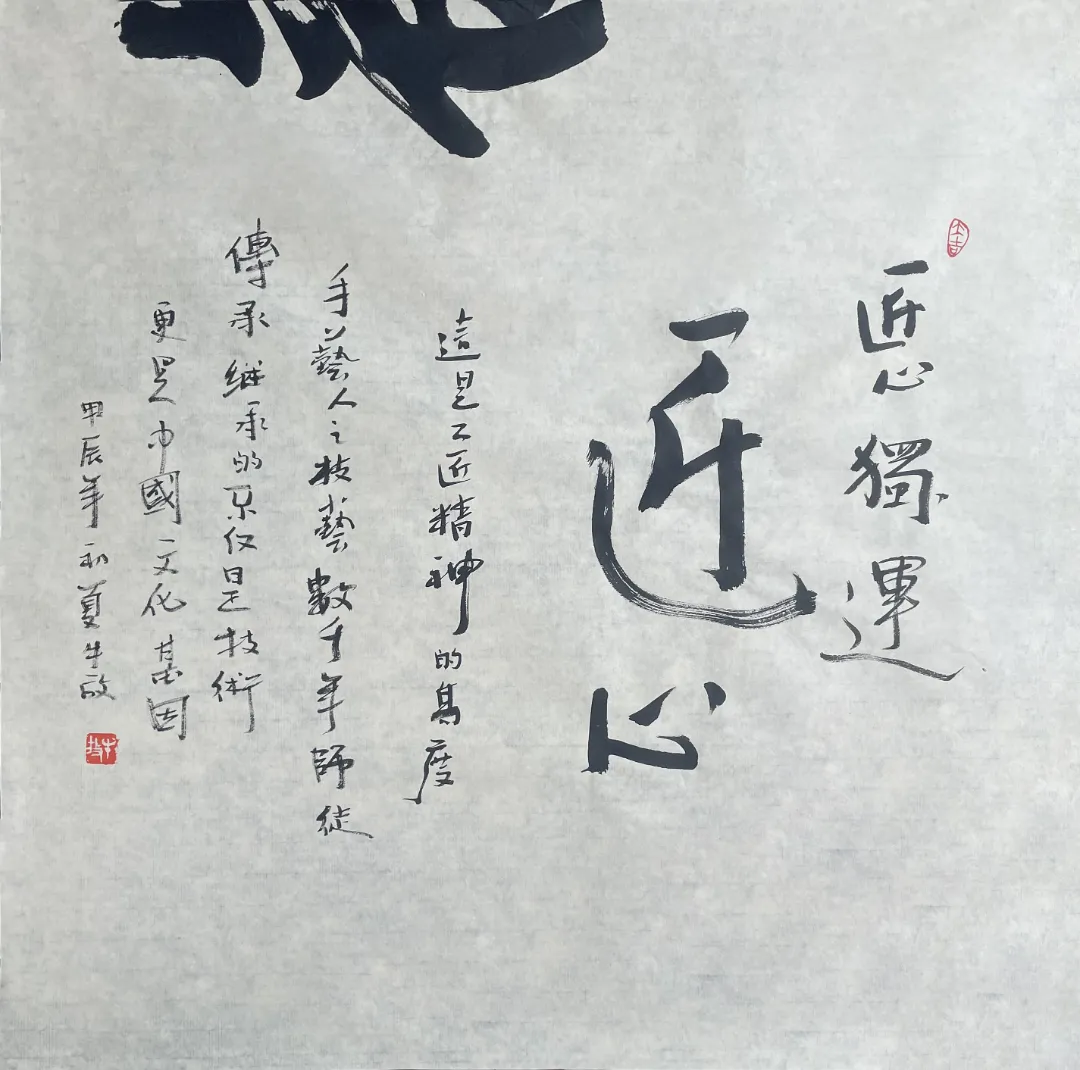 匠心獨運
匠心
這是工匠精神的高度
手藝人之技藝數千年師徒
傳承繼承的不仅是技術
更是中國文化基因
甲辰年初夏牛政